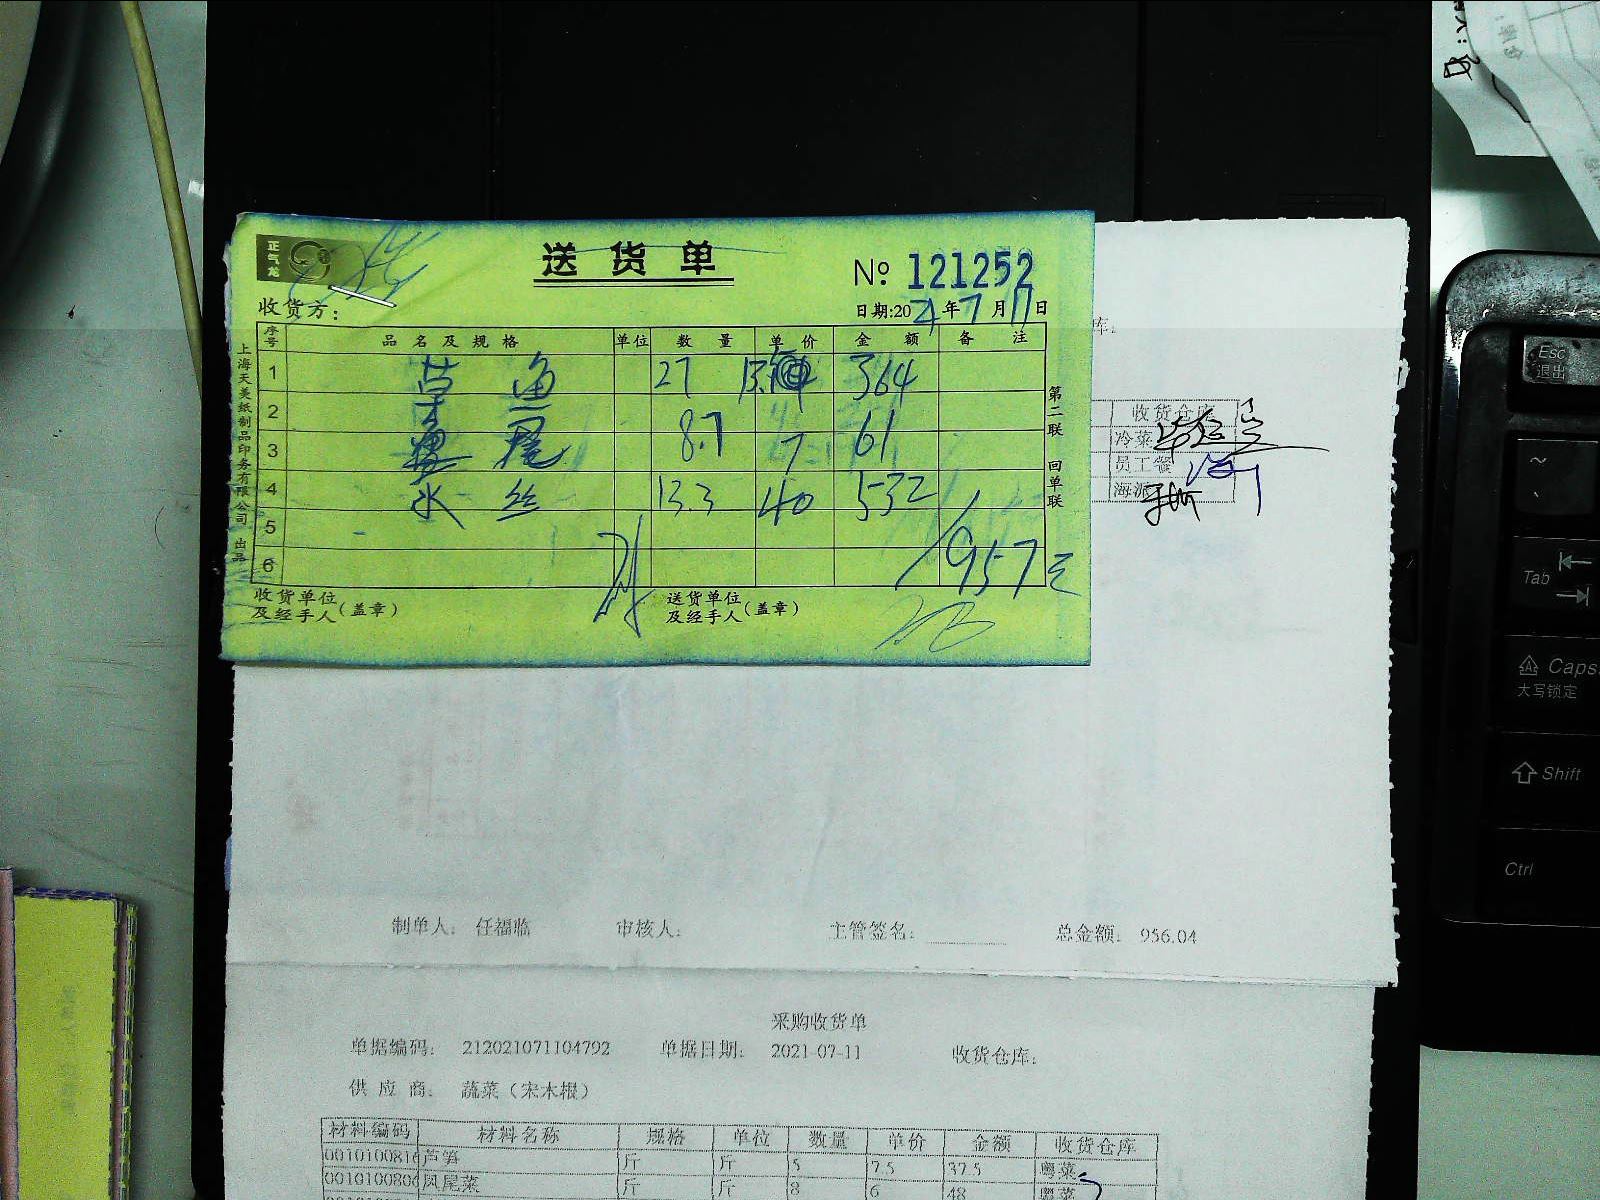 正气龙
送货单
№ 121252
收货方:
日期:2021年7月11日
序号 品名及规格 单位 数量 单价 金额 备注
1 草鱼 27 13.5 364
2
3 尾 8.7 7 61
4 水 丝 13.3 40 532
5
6
957元
收货单位及经手人(盖章)
送货单位及经手人(盖章)
上海天美纸制品印务有限公司 出品
第二联 回单联
库:
收货仓库
冷菜
员工餐
海派
制单人: 任福临 审核人: 主管签名: 总金额: 956.04
采购收货单
单据编码: 212021071104792 单据日期: 2021-07-11 收货仓库:
供应商: 蔬菜(宋木根)
材料编码 材料名称 规格 单位 数量 单价 金额 收货仓库
0010100816 芦笋 斤 斤 5 7.5 37.5 粤菜
001010080 凤尾菜 斤 斤 8 6 48 粤菜
Esc
退出
~
Tab
Caps
大写锁定
Shift
Ctrl